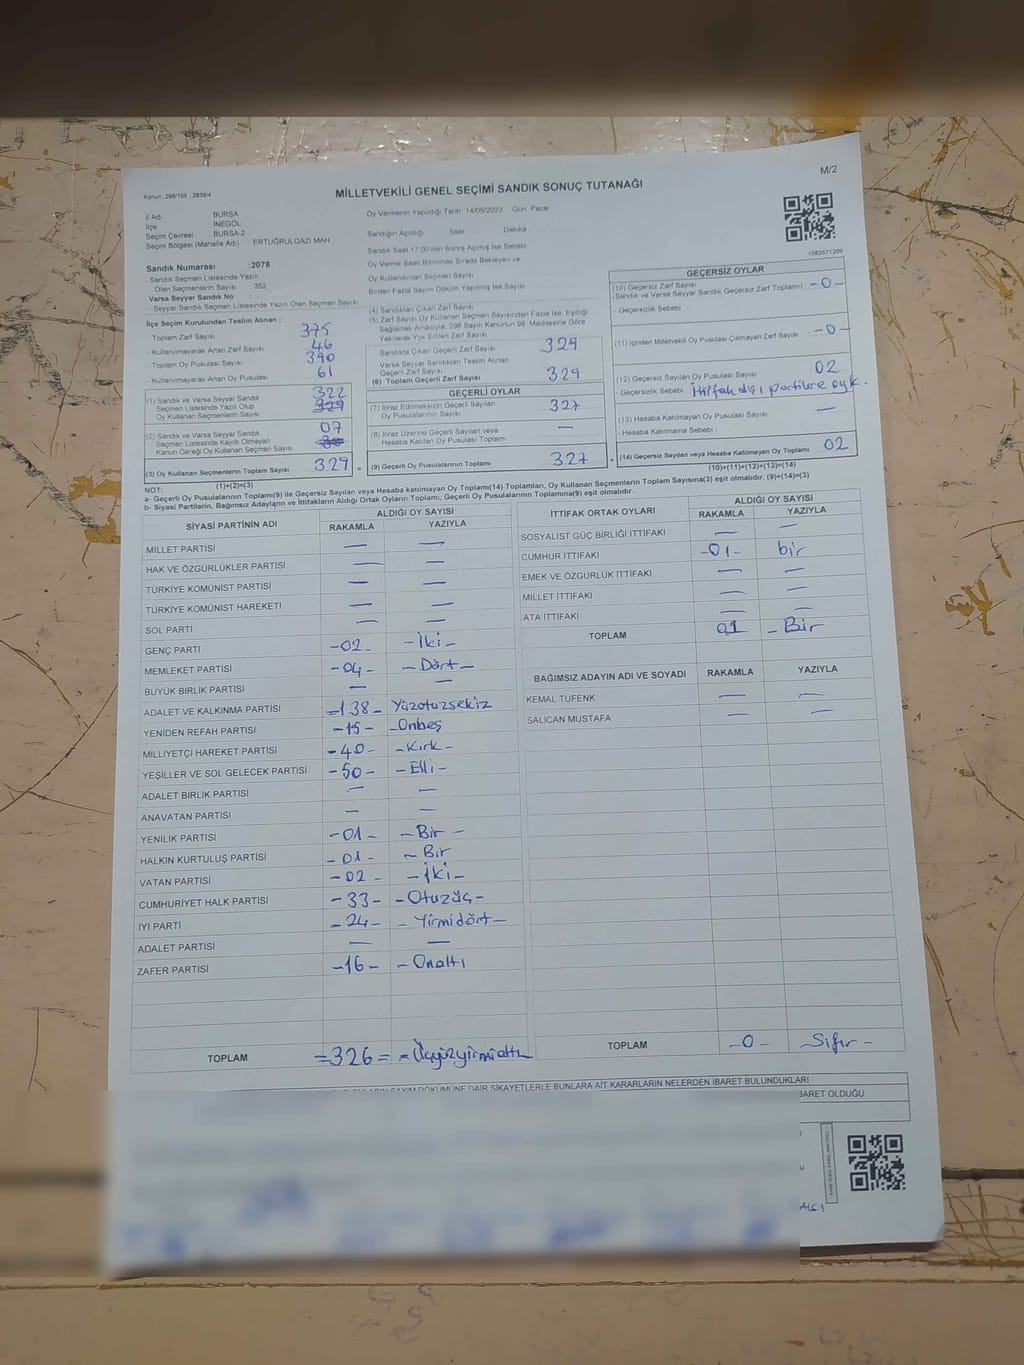 M/2
Kanun: 298/105 ; 2839/4
MİLLETVEKİLİ GENEL SEÇİMİ SANDIK SONUÇ TUTANAĞI
İl Adı BURSA
İlçe İNEGÖL
Seçim Çevresi BURSA-2
Seçim Bölgesi (Mahalle Adı) ERTUĞRULGAZİ MAH
Sandık Numarası :2078
- Sandık Seçmen Listesinde Yazılı
Olan Seçmenlerin Sayısı 352
Varsa Seyyar Sandık No :
- Seyyar Sandık Seçmen Listesinde Yazılı Olan Seçmen Sayısı
Oy Vermenin Yapıldığı Tarih 14/05/2023 Gün Pazar
Sandığın Açıldığı Saat Dakika
Sandık Saat 17.00'den Sonra Açılmış İse Sebebi
Oy Verme Saati Bitiminde Sırada Bekleyen ve
Oy Kullandırılan Seçmen Sayısı
Birden Fazla Sayım Döküm Yapılmış İse Sayısı
1083571209
İlçe Seçim Kurulundan Teslim Alınan :
- Toplam Zarf Sayısı 375
- Kullanılmayarak Artan Zarf Sayısı 46
- Toplam Oy Pusulası Sayısı 390
- Kullanılmayarak Artan Oy Pusulası 61
(1) Sandık ve Varsa Seyyar Sandık
Seçmen Listesinde Yazılı Olup
Oy Kullanan Seçmenlerin Sayısı
322
329
(2) Sandık ve Varsa Seyyar Sandık
Seçmen Listesinde Kayıtlı Olmayan
Kanun Gereği Oy Kullanan Seçmen Sayısı
07
(3) Oy Kullanan Seçmenlerin Toplam Sayısı 329
(1)+(2)=(3)
(4) Sandıktan Çıkan Zarf Sayısı
(5) Zarf Sayısı Oy Kullanan Seçmen Sayısından Fazla İse, Eşitliği
Sağlamak Amacıyla, 298 Sayılı Kanunun 98. Maddesine Göre
Yakılarak Yok Edilen Zarf Sayısı
Sandıkta Çıkan Geçerli Zarf Sayısı 329
Varsa Seyyar Sandıktan Teslim Alınan
Geçerli Zarf Sayısı
(6) Toplam Geçerli Zarf Sayısı 329
GEÇERLİ OYLAR
(7) İtiraz Edilmeksizin Geçerli Sayılan
Oy Pusulalarının Sayısı 327
(8) İtiraz Üzerine Geçerli Sayılan veya
Hesaba Katılan Oy Pusulası Toplamı —
(9) Geçerli Oy Pusulalarının Toplamı 327
GEÇERSİZ OYLAR
(10) Geçersiz Zarf Sayısı
(Sandık ve Varsa Seyyar Sandık Geçersiz Zarf Toplamı) : -0-
- Geçersizlik Sebebi
(11) İçinden Milletvekili Oy Pusulası Çıkmayan Zarf Sayısı -0-
(12) Geçersiz Sayılan Oy Pusulası Sayısı 02
- Geçersizlik Sebebi : İttifak dışı partilere oyk.
(13) Hesaba Katılmayan Oy Pusulası Sayısı —
- Hesaba Katılmama Sebebi :
(14) Geçersiz Sayılan veya Hesaba Katılmayan Oy Toplamı 02
(10)+(11)+(12)+(13)=(14)
NOT:
a- Geçerli Oy Pusulalarının Toplamı(9) ile Geçersiz Sayılan veya Hesaba katılmayan Oy Toplamı(14) Toplamları, Oy Kullanan Seçmenlerin Toplam Sayısına(3) eşit olmalıdır. (9)+(14)=(3)
b- Siyasi Partilerin, Bağımsız Adayların ve İttifakların Aldığı Ortak Oyların Toplamı, Geçerli Oy Pusulalarının Toplamına(9) eşit olmalıdır.
SİYASİ PARTİNİN ADI ALDIĞI OY SAYISI
RAKAMLA YAZIYLA
MİLLET PARTİSİ — —
HAK VE ÖZGÜRLÜKLER PARTİSİ — —
TÜRKİYE KOMÜNİST PARTİSİ — —
TÜRKİYE KOMÜNİST HAREKETİ — —
SOL PARTİ — —
GENÇ PARTİ -02- -İki-
MEMLEKET PARTİSİ -04- -Dört-
BÜYÜK BİRLİK PARTİSİ — —
ADALET VE KALKINMA PARTİSİ -138- Yüzotuzsekiz
YENİDEN REFAH PARTİSİ -15- -Onbeş
MİLLİYETÇİ HAREKET PARTİSİ -40- -Kırk-
YEŞİLLER VE SOL GELECEK PARTİSİ -50- -Elli-
ADALET BİRLİK PARTİSİ — —
ANAVATAN PARTİSİ — —
YENİLİK PARTİSİ -01- -Bir-
HALKIN KURTULUŞ PARTİSİ -01- -Bir
VATAN PARTİSİ -02- -İki-
CUMHURİYET HALK PARTİSİ -33- -Otuzüç-
İYİ PARTİ -24- -Yirmidört-
ADALET PARTİSİ — —
ZAFER PARTİSİ -16- -Onaltı
TOPLAM =326= -Üçyüzyirmialtı
İTTİFAK ORTAK OYLARI ALDIĞI OY SAYISI
RAKAMLA YAZIYLA
SOSYALİST GÜÇ BİRLİĞİ İTTİFAKI — —
CUMHUR İTTİFAKI -01- bir
EMEK VE ÖZGÜRLÜK İTTİFAKI — —
MİLLET İTTİFAKI — —
ATA İTTİFAKI — —
TOPLAM 01 -Bir
BAĞIMSIZ ADAYIN ADI VE SOYADI RAKAMLA YAZIYLA
KEMAL TÜFENK — —
SALİCAN MUSTAFA — —
TOPLAM -0- Sıfır-
DÖKÜMÜNE DAİR ŞİKAYETLERLE BUNLARA AİT KARARLARIN NELERDEN İBARET BULUNDUKLARI
BARET OLDUĞU